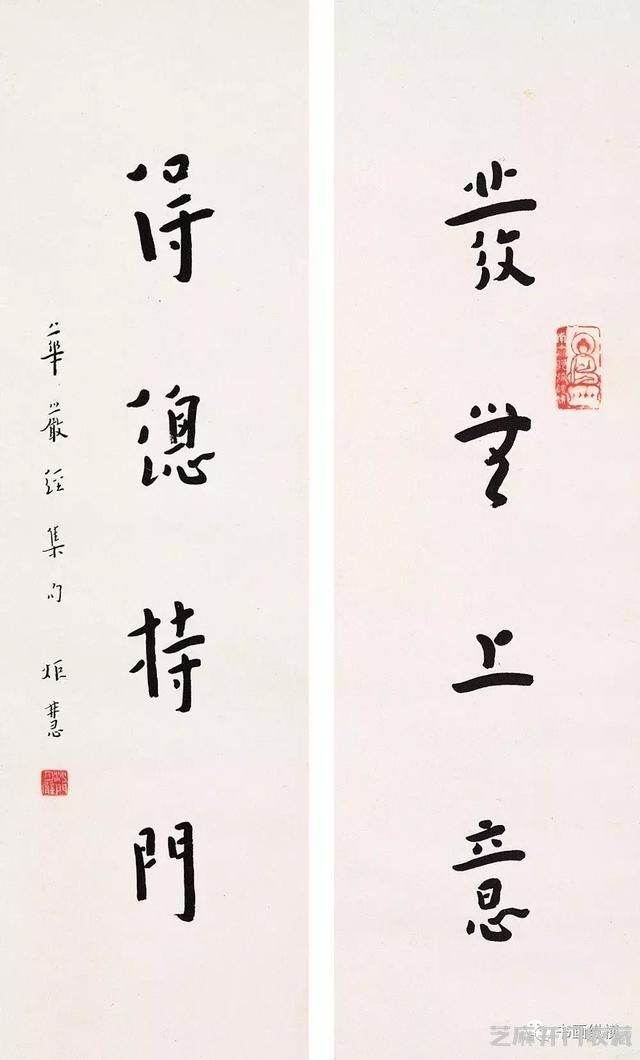 發無上意
得總持門
華嚴經集句 炬慧
书画纵横
芝麻开门收藏